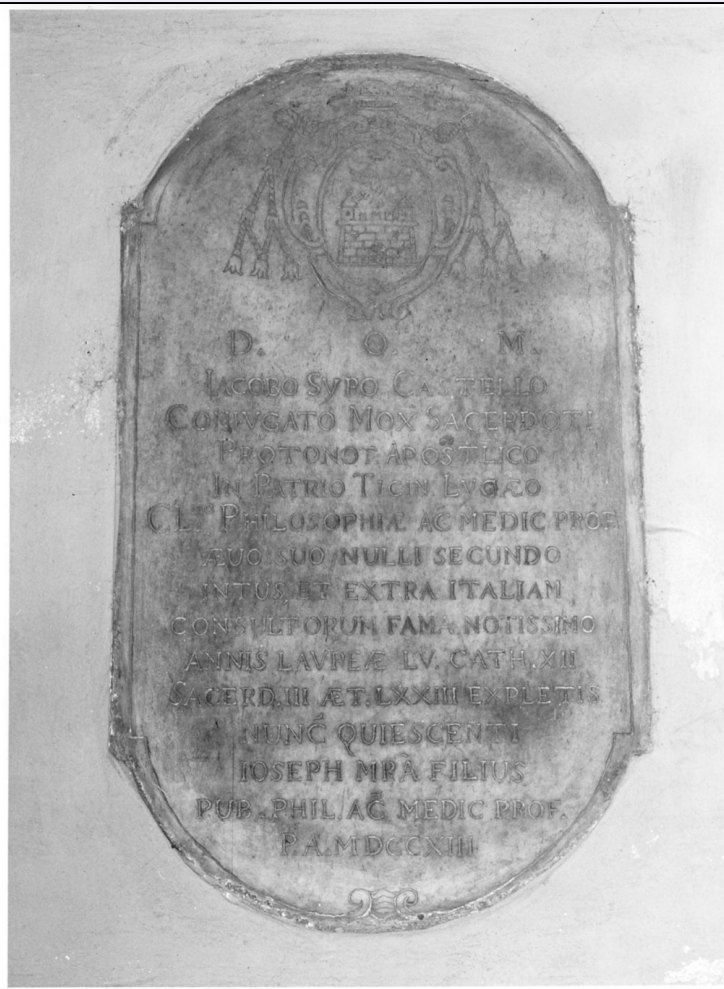 D. O. M.
IACOBO SYRO CASTELLO
CONIVGATO MOX SACERDOTI
PROTONOT. APOSTLICO
IN PATRIO TICIN. LYCÆO
C L.mo PHILOSOPHIÆ AC MEDIC. PROF.
ÆUO SUO NULLI SECUNDO
INTUS ET EXTRA ITALIAM
CONSULTORUM FAMA NOTISSIMO
ANNIS LAVREÆ LV. CATH. XII
SACERD. III ÆT. LXXIII EXPLETIS
NUNC QUIESCENTI
IOSEPH MRA FILIUS
PUB. PHIL. AC MEDIC PROF.
P. A. MDCCXIII